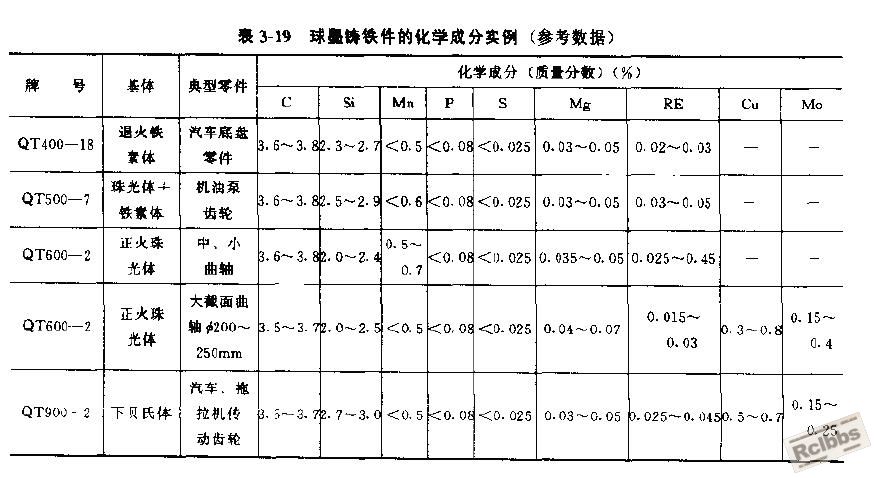 表 3-19 球墨铸铁件的化学成分实例（参考数据）
牌 号 基体 典型零件 化学成分（质量分数）(％)
C Si Mn P S Mg RE Cu Mo
QT400—18 退火铁素体 汽车底盘零件 3.6～3.8 2.3～2.7 <0.5 <0.08 <0.025 0.03～0.05 0.02～0.03 — —
QT500—7 珠光体＋铁素体 机油泵齿轮 3.6～3.8 2.5～2.9 <0.6 <0.08 <0.025 0.03～0.05 0.03～0.05 — —
QT600—2 正火珠光体 中、小曲轴 3.6～3.8 2.0～2.4 0.5～0.7 <0.08 <0.025 0.035～0.05 0.025～0.45 — —
QT600—2 正火珠光体 大截面曲轴 φ200～250mm 3.5～3.7 2.0～2.5 <0.5 <0.08 <0.025 0.04～0.07 0.015～0.03 0.3～0.8 0.15～0.4
QT900-2 下贝氏体 汽车、拖拉机传动齿轮 3.5～3.7 2.7～3.0 <0.5 <0.08 <0.025 0.03～0.05 0.025～0.045 0.5～0.7 0.15～0.25
Rclbbs